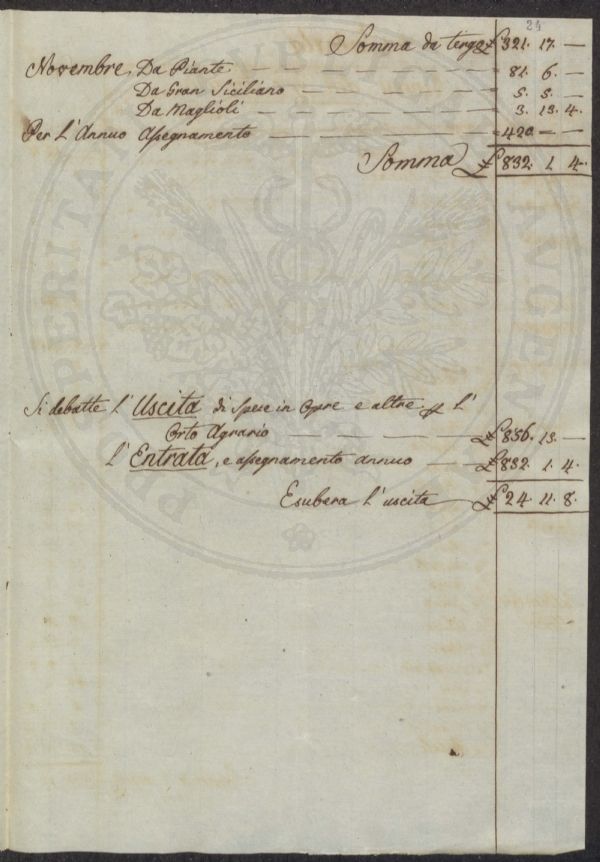 24
Somma da tergo £ 321. 17. —
Novembre. Da Piante — — — — — — = 81. 6. —
Da Gran Siciliano — — — — — = 5. 5. —
Da Maglioli — — — — — — = 3. 13. 4.
Per l'Annuo Assegnamento — — — — — = 420 — —
Somma £ 832. 1. 4.
Si debatte l'Uscita di Spese in Opre e altre p l'
Orto Agrario — — — — — £ 856. 13. —
l'Entrata, e assegnamento annuo — — £ 832. 1. 4.
Esubera l'uscita — £ 24. 11. 8.